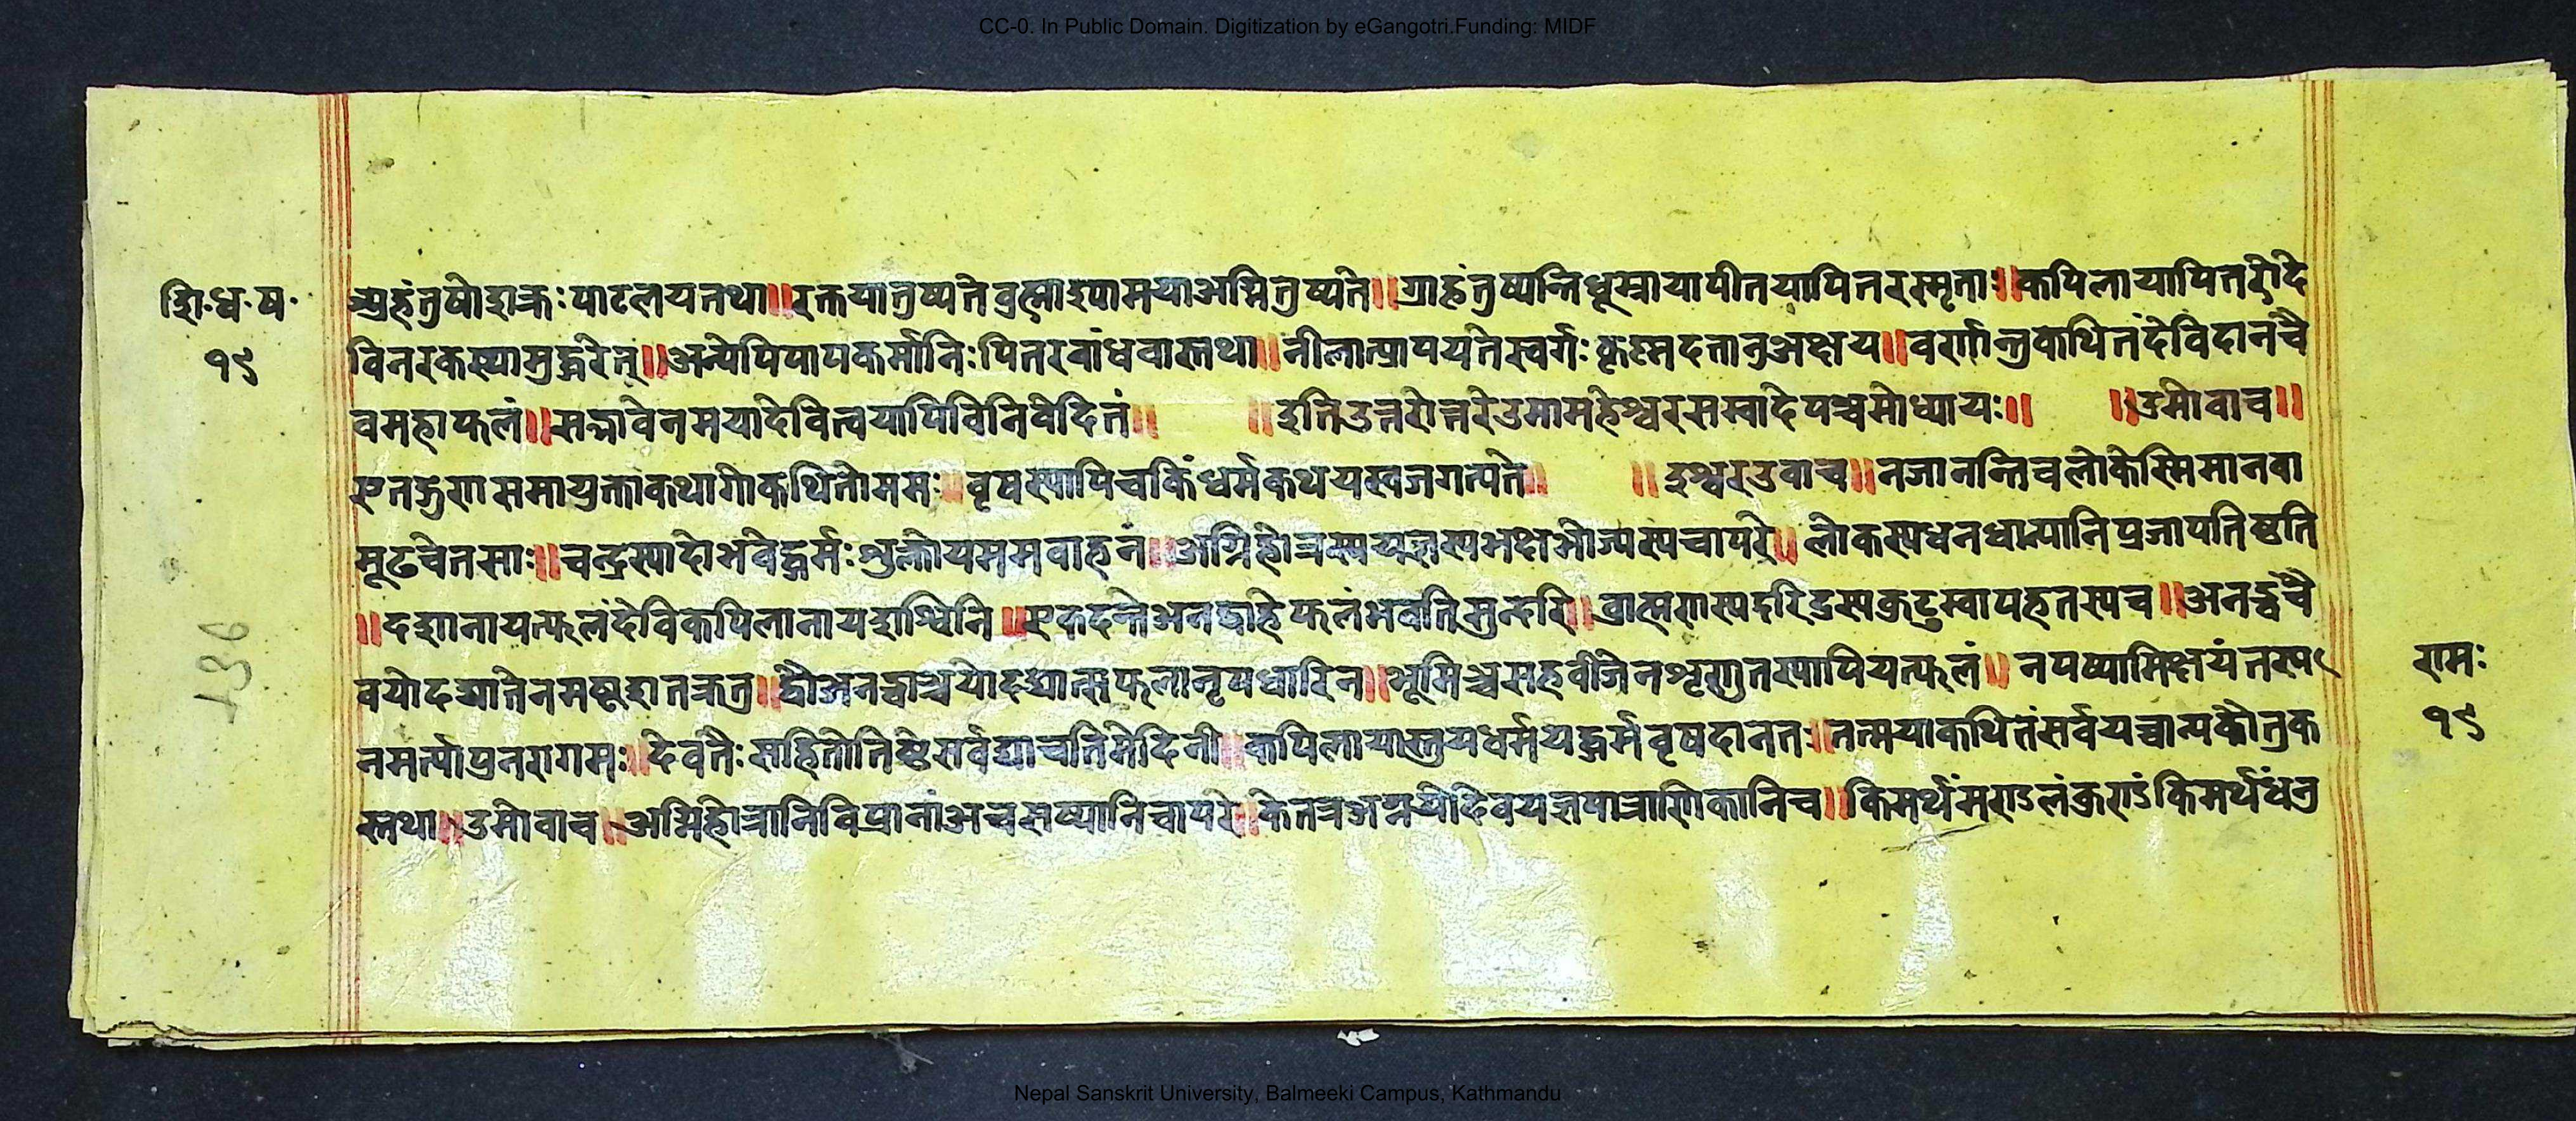 CC-0. In Public Domain. Digitization by eGangotri.Funding: MIDF
शि॰ध॰ष॰
१९
शुद्रंतुषोडाक्रः पाटलयनथा॥रक्तयातुष्यते ब्रह्माश्यामयाअग्नितुष्यते॥ग्राहंतुष्यन्तिधूम्रायापीतयापितरस्मृताः॥कपिलायापितरोदे
विनरकस्यामुद्धरेत्॥अन्येपिपापकर्मानिः पितरबांधवास्तथा॥नीलात्प्रापयतेस्वर्गः कृष्णदत्तानुअक्षय॥वर्णान्तुकथितंदेविदानंचै
वमहाफलं॥सद्भावेनमयादेवित्वयापिविनिवेदितं॥ ॥इतिउत्तरोत्तरेउमामहेश्वरसम्वादेपञ्चमोध्यायः॥ ॥उमोवाच॥
एतद्गुणासमायुक्ताकथागोकथितोममः॥वृषस्यापिचकिंधर्मकथयस्वजगत्पते॥ ॥ईश्वरउवाच॥नजानन्तिचलोकेस्मिमानवा
मूढचेतसाः॥चन्द्रस्यादोभवेद्धर्मः शुक्लोयममवाहनं॥अग्निहोत्रस्ययज्ञस्यभक्षभोज्यस्यचापरे॥लोकस्यधनधान्यानिप्रजापतिष्ठति
॥दशानायत्फलंदेविकपिलानायशश्विनि॥एकदन्तेअनड्वाहेफलंभवतिसुन्दरि॥ब्राह्मणस्यदरिद्रस्यकुटुम्वापहतस्यच॥अनड्वंचै
वयोदद्यातेनमष्टशतक्रतु॥द्वौअनड्वाञ्चयोदद्यात्सफलानृपधारिन॥भूमिञ्चसहवीजेनशृणुतस्यापियत्फलं॥नपष्यामिक्षयंतस्य
नमर्त्यापुनरागमः॥देवतैः सहितोतिष्ठेसर्वद्याचतिमेदिनी॥कपिलायास्तुयधर्मयद्धर्मवृषदानतः॥तत्मयाकथितंसर्वयच्चान्यकौतुक
स्तथा॥उमोवाच॥अग्निहोत्रानिविप्रानांअचसष्यानिचापरे॥केतत्रअग्नयोदेवयज्ञपात्राणिकानिच॥किमर्थंमराऽलंकुराऽंकिमर्थंधंत्रु
रामः
१९
136
Nepal Sanskrit University, Balmeeki Campus, Kathmandu